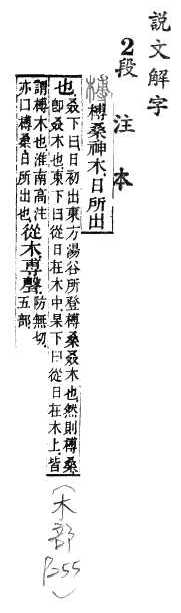 說文解字
2段 注 本
榑桑神木、日所出
也。
叒下曰。日初出東方湯谷所登榑桑。叒木也。然則榑桑
卽叒木也。東下曰。從日在木中。杲下曰。從日在木上。皆
謂榑木也。淮南高注
亦曰榑桑日所出也。
從木尃聲。
防無切。
五部。
(木部
P255)